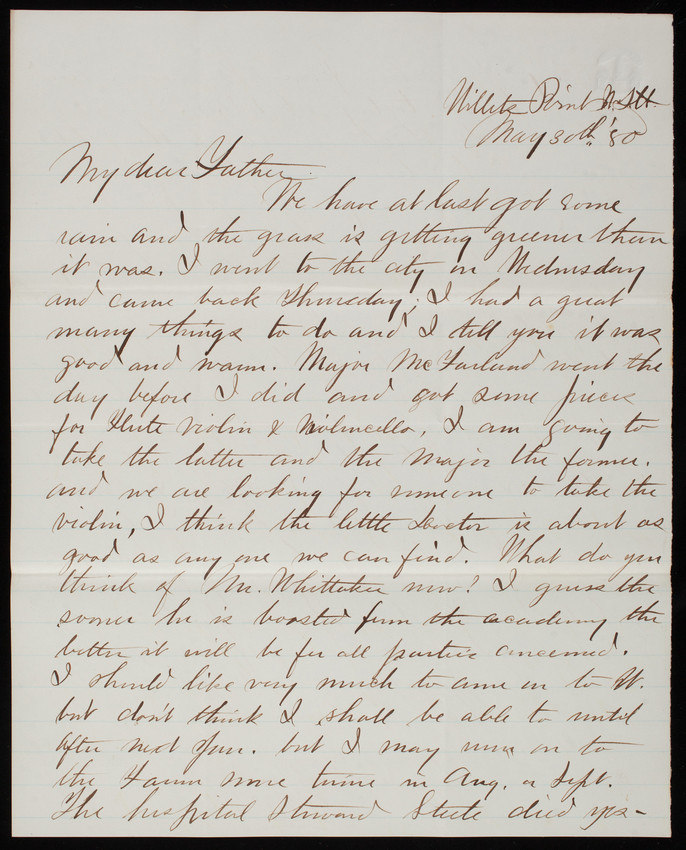 Willets Point N.Y.H.
May 30th '80
My dear Father
We have at last got some
rain and the grass is getting greener than
it was. I went to the city on Wednesday
and came back Thursday, I had a great
many things to do and I tell you it was
good and warm. Major McFarland went the
day before I did and got some pieces
for Flute violin & Violincello, I am going to
take the latter and the Major the former.
and we are looking for someone to take the
violin, I think the little Doctor is about as
good as any one we can find. What do you
think of Mr. Whittaker now? I guess the
sooner he is boosted from the academy the
better it will be for all parties concerned.
I should like very much to come on to W.
but don't think I shall be able to until
after next Jan. but I may run on to
the Farm some time in Aug. or Sept.
The hospital Steward Steele died yes-